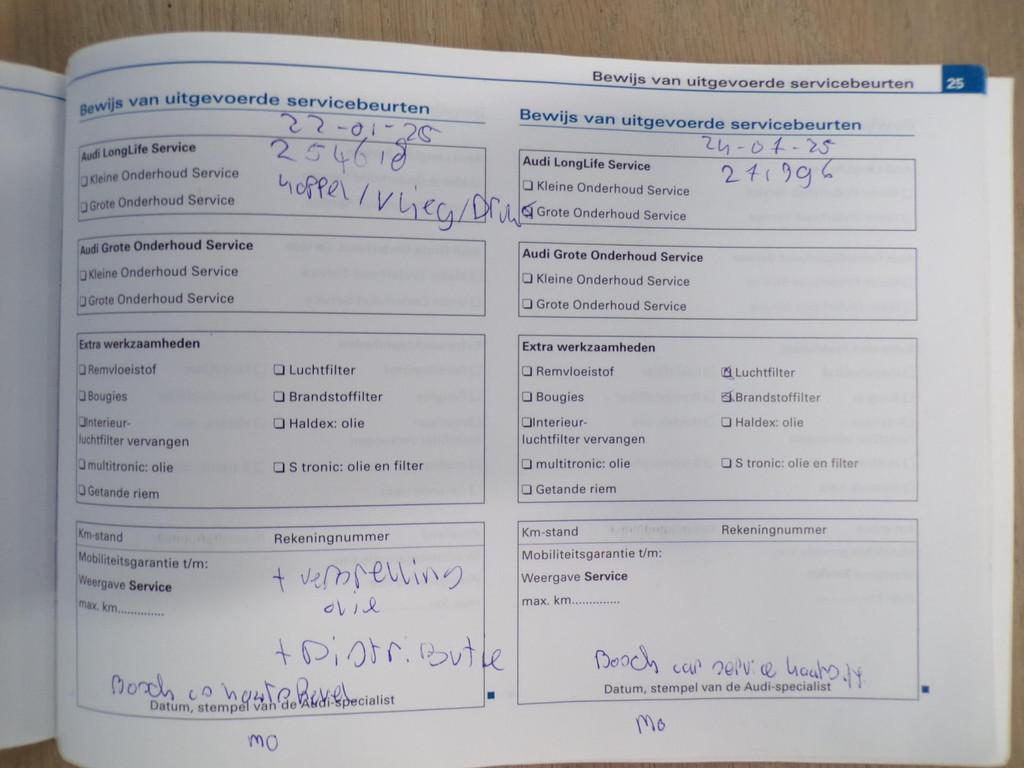 Bewijs van uitgevoerde servicebeurten 25
Bewijs van uitgevoerde servicebeurten
22-01-25
Audi LongLife Service
254618
Kleine Onderhoud Service
koppel/vlieg/Druk
Grote Onderhoud Service
Audi Grote Onderhoud Service
Kleine Onderhoud Service
Grote Onderhoud Service
Extra werkzaamheden
Remvloeistof Luchtfilter
Bougies Brandstoffilter
Interieur- Haldex: olie
luchtfilter vervangen
multitronic: olie S tronic: olie en filter
Getande riem
Km-stand Rekeningnummer
Mobiliteitsgarantie t/m:
+ versnelling
Weergave Service
olie
max. km.............
+ Distributie
Bosch cs
Datum, stempel van de Audi-specialist
MO
Bewijs van uitgevoerde servicebeurten
24-07-25
Audi LongLife Service
271996
Kleine Onderhoud Service
Grote Onderhoud Service
Audi Grote Onderhoud Service
Kleine Onderhoud Service
Grote Onderhoud Service
Extra werkzaamheden
Remvloeistof Luchtfilter
Bougies Brandstoffilter
Interieur- Haldex: olie
luchtfilter vervangen
multitronic: olie S tronic: olie en filter
Getande riem
Km-stand Rekeningnummer
Mobiliteitsgarantie t/m:
Weergave Service
max. km.............
Bosch car service
Datum, stempel van de Audi-specialist
MO